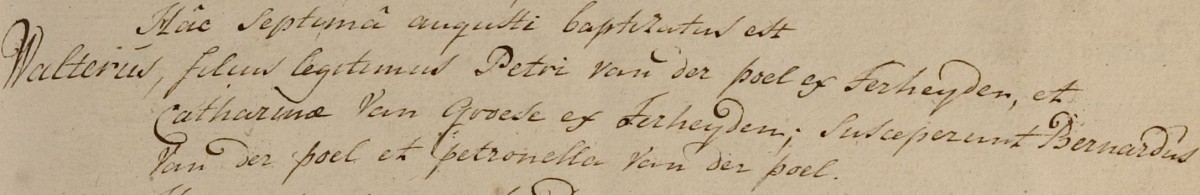 Hâc septimâ augusti baptizatus est
Walterus, filius legitimus Petri van der poel ex Terheyden, et
Catharinæ Van Groese ex Terheyden; susceperunt Bernardus
Van der poel et petronella Van der poel.